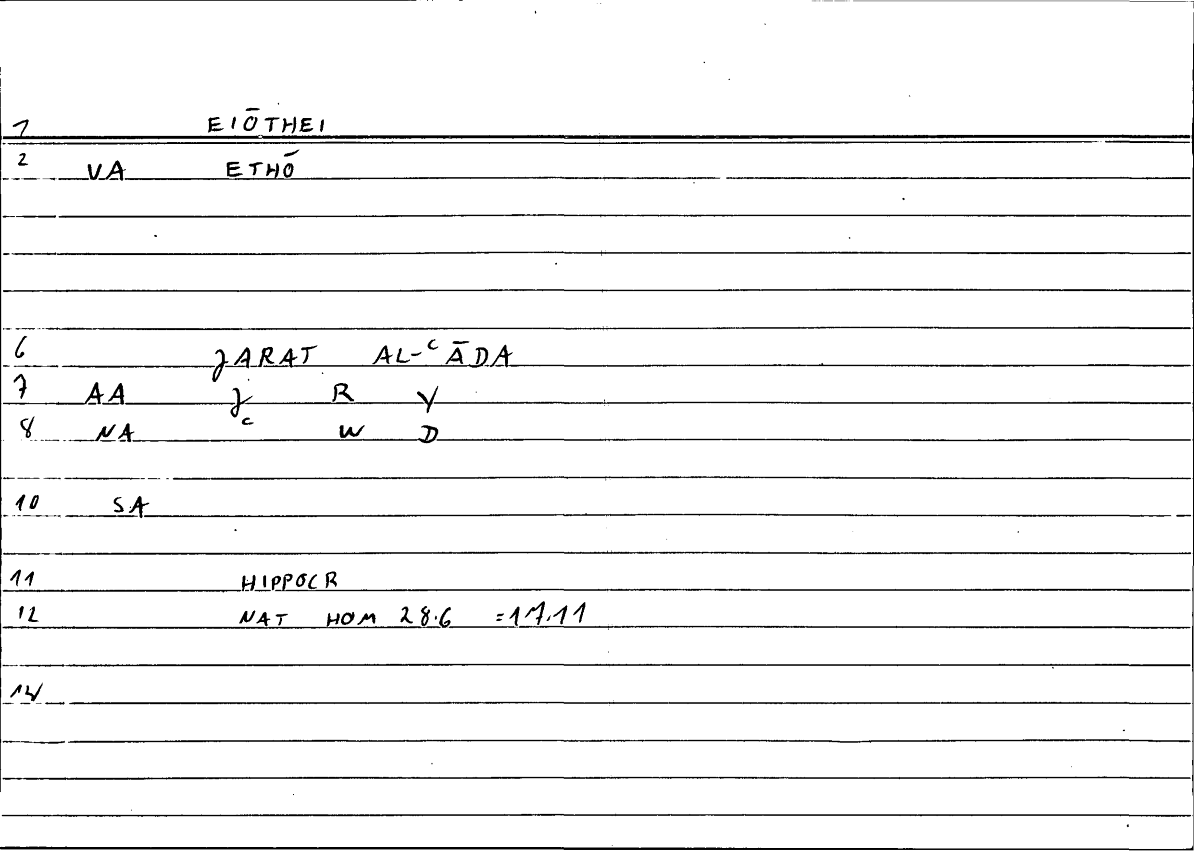 1 EIŌTHEI
2 VA ETHŌ
6 ȷARAT AL-ᶜĀDA
7 AA ȷ R Y
8 NA ᶜ W D
10 SA
11 HIPPOCR
12 NAT HOM 28.6 =17.11
14